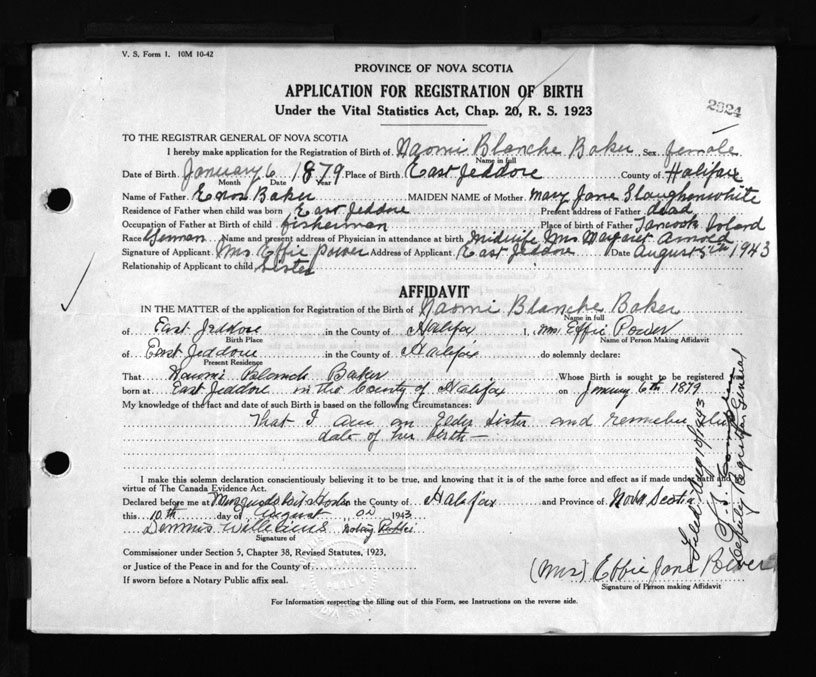 V. S. Form 1. 10M 10-42
PROVINCE OF NOVA SCOTIA
APPLICATION FOR REGISTRATION OF BIRTH
Under the Vital Statistics Act, Chap. 20, R. S. 1923
2924
TO THE REGISTRAR GENERAL OF NOVA SCOTIA
I hereby make application for the Registration of Birth of Naomi Blanche Baker, Sex female
Name in full
Date of Birth January 6 1879 Place of Birth East Jeddore County of Halifax
Month Date Year
Name of Father Enos Baker MAIDEN NAME of Mother Mary Jane Slaughenwhite
Residence of Father when child was born East Jeddore Present address of Father dead
Occupation of Father at Birth of child fisherman Place of birth of Father Tancook Island
Race German Name and present address of Physician in attendance at birth Midwife Mrs Margaret Arnold
Signature of Applicant Mrs Effie Power Address of Applicant East Jeddore Date August 5th 1943
Relationship of Applicant to child Sister
AFFIDAVIT
IN THE MATTER of the application for Registration of the Birth of Naomi Blanche Baker
Name in full
of East Jeddore in the County of Halifax I, Mrs. Effie Power
Birth Place Name of Person Making Affidavit
of East Jeddore in the County of Halifax do solemnly declare:
Present Residence
That Naomi Blanch Baker Whose Birth is sought to be registered
born at East Jeddore in the County of Halifax on January 6th 1879
My knowledge of the fact and date of such Birth is based on the following Circumstances:
That I am an Elder Sister and remember the
date of her birth —
I make this solemn declaration conscientiously believing it to be true, and knowing that it is of the same force and effect as if made under oath and
virtue of The Canada Evidence Act.
Declared before me at Musquodoboit Harbor in the County of Halifax and Province of Nova Scotia
this 10th day of August A.D. 1943
Dennis Williams Notary Public
Signature of
Commissioner under Section 5, Chapter 38, Revised Statutes, 1923,
or Justice of the Peace in and for the County of
If sworn before a Notary Public affix seal.
(Mrs) Effie Jane Power
Signature of Person making Affidavit
For Information respecting the filling out of this Form, see Instructions on the reverse side.
Filed Aug 18 1943
Deputy Registrar General